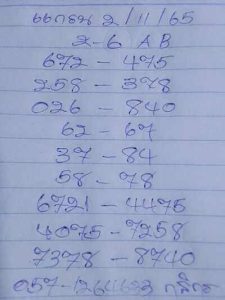 แยกธน 2/11/65
2-6 A B
672 - 475
258 - 378
026 - 840
62 - 67
37 - 84
58 - 78
6721 - 4475
4075 - 7258
7378 - 8740
057-1264423 กสิกร